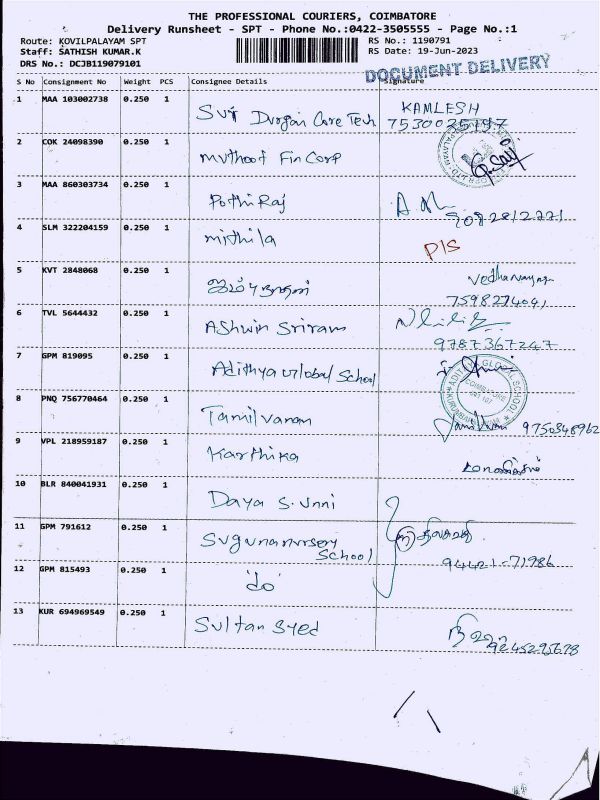 THE PROFESSIONAL COURIERS, COIMBATORE
Delivery Runsheet - SPT - Phone No.:0422-3505555 - Page No.:1
Route: KOVILPALAYAM SPT RS No.: 1190791
Staff: SATHISH KUMAR.K RS Date: 19-Jun-2023
DRS No.: DCJB119079101
DOCUMENT DELIVERY
S No Consignment No Weight PCS Consignee Details Signature
1 MAA 103002738 0.250 1 KAMLESH
Sur Durgan Care Tech
2 COK 24098390 0.250 1
Muthoot Fin Corp
3 MAA 860303734 0.250 1
PothiRaj
4 SLM 322204159 0.250 1
mithila P/S
5 KVT 2848068 0.250 1
7598274041
6 TVL 5644432 0.250 1
Ashwin Sriram
9787367247
7 GPM 819095 0.250 1
Adithya Global School
8 PNQ 756770464 0.250 1
Tamilvanam 9750848962
9 VPL 218959187 0.250 1
Karthika
10 BLR 840041931 0.250 1
Daya S. unni
11 GPM 791612 0.250 1
Sugunanursery
School
94421-71986
12 GPM 815493 0.250 1
'do'
13 KUR 694969549 0.250 1
Sultan Syed
9245295678